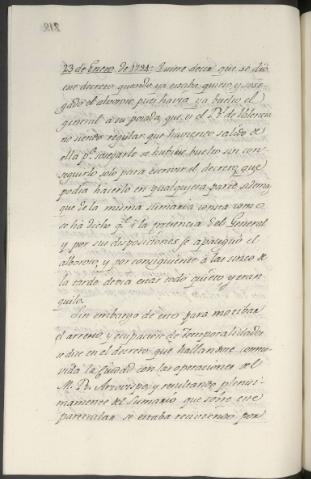 23 de Enero de 1794: Quiere decir que se dió
este decreto quando ya estaba quieto y sose-
gado el alboroto, pues havia ya buelto el
general a su posada, que es el P.º de Valencia
no siendo regular que haviendo salido de
ella p.ª sosegarlo se hubiese buelto sin con-
seguirlo solo para escrivir el decreto, que
podia hacerlo en qualquiera parte, si bien
que de la misma sumaria consta como
se há dicho q.e á la presencia del General
y por sus disposiciones se apaciguó el
alboroto, y por consiguiente á las cinco de
la tarde devia estar todo quieto y tran-
quilo.
Sin embargo de esto para motibar
el arresto, y ocupacion de Temporalidades
se dice en el decreto, que hallandose conmo-
vida la Ciudad con las operaciones del
M. R. Arzobispo, y resultando plenisi-
mamente del Sumario que sobre este
particular se estaba reciviendo por